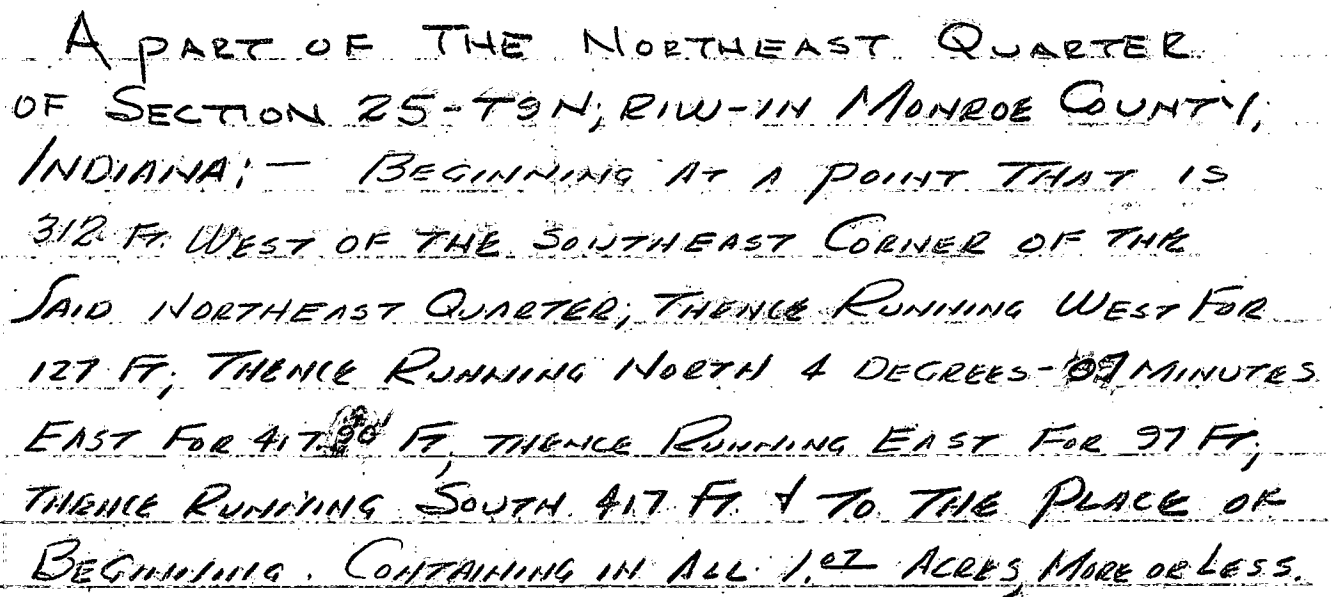 A PART OF THE NORTHEAST QUARTER
OF SECTION 25-T9N; R1W-IN MONROE COUNTY,
INDIANA; — BEGINNING AT A POINT THAT IS
312 FT. WEST OF THE SOUTHEAST CORNER OF THE
SAID NORTHEAST QUARTER; THENCE RUNNING WEST FOR
127 FT; THENCE RUNNING NORTH 4 DEGREES-07 MINUTES
EAST FOR 417. FT, THENCE RUNNING EAST FOR 97 FT;
THENCE RUNNING SOUTH 417 FT. & TO THE PLACE OF
BEGINNING. CONTAINING IN ALL 1.07 ACRES, MORE OR LESS.